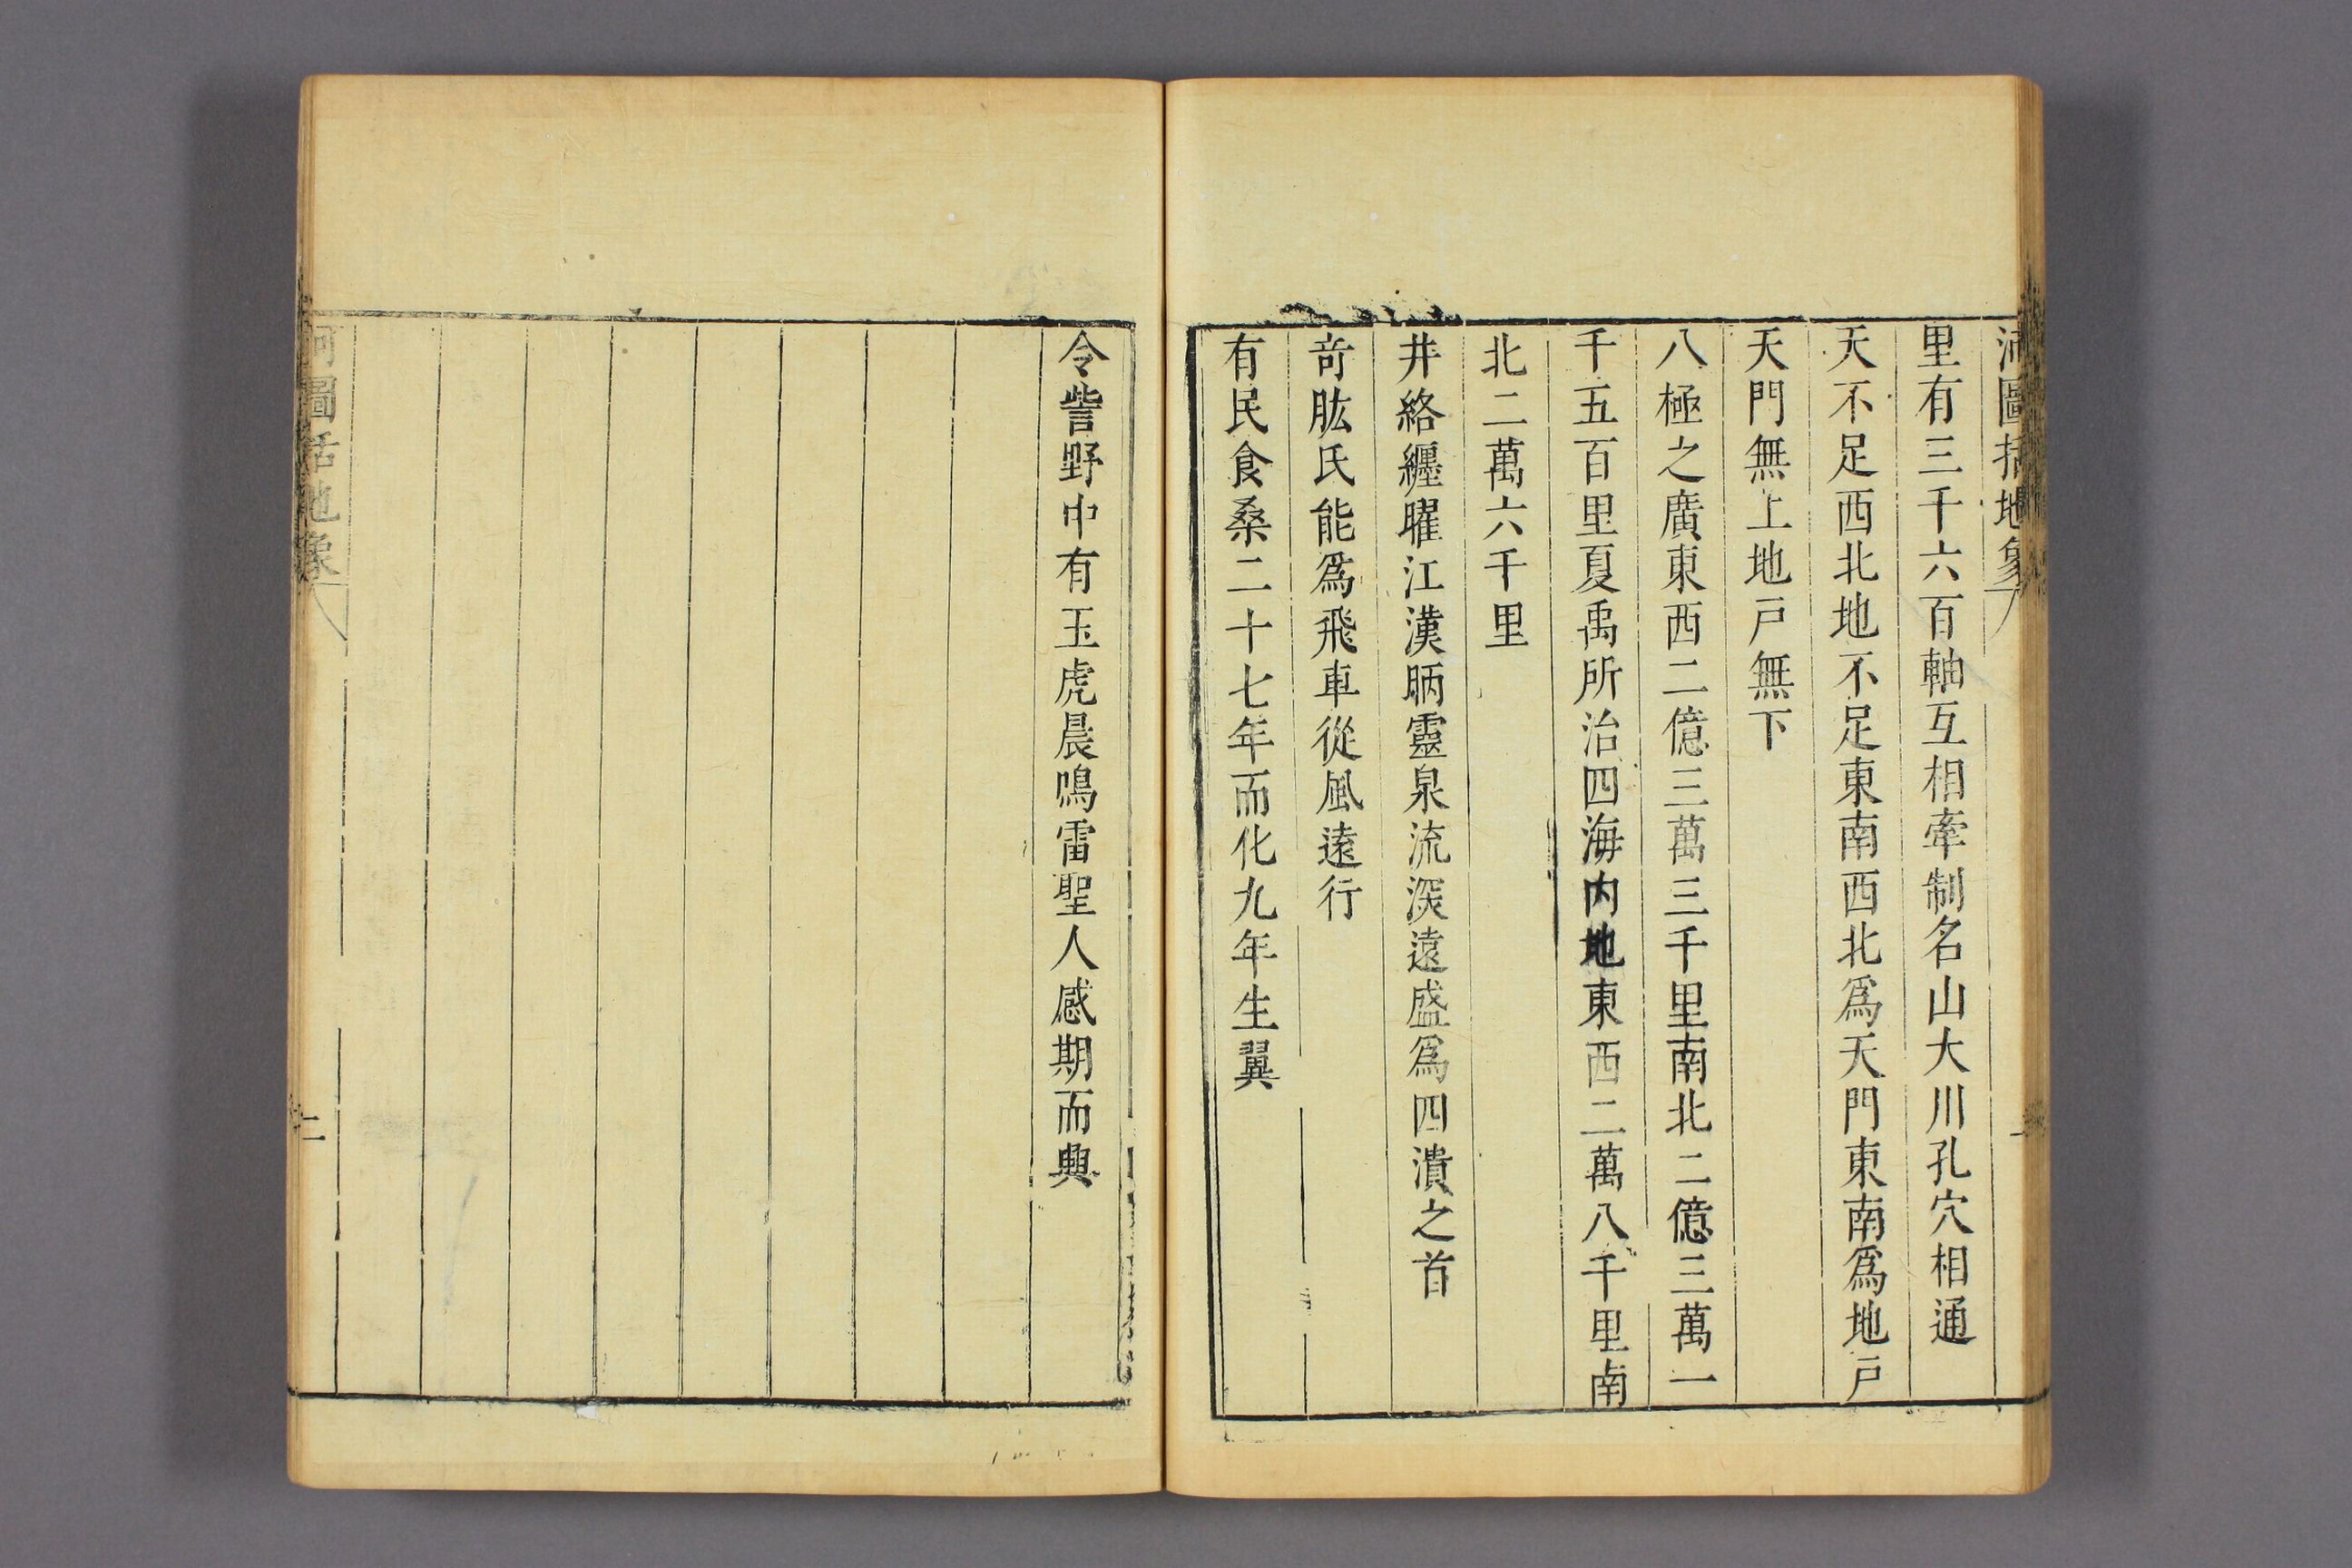 河圖括地象
里有三千六百軸互相牽制名山大川孔穴相通
天不足西北地不足東南西北爲天門東南爲地戸
天門無上地戸無下
八極之廣東西二億三萬三千里南北二億三萬一
千五百里夏禹所治四海内地東西二萬八千里南
北二萬六千里
井絡纏曜江漢昞靈泉流深遠盛爲四瀆之首
竒肱氏能爲飛車從風遠行
有民食桑二十七年而化九年生翼
令訾野中有玉虎晨鳴雷聖人感期而興
河圖括地象
二